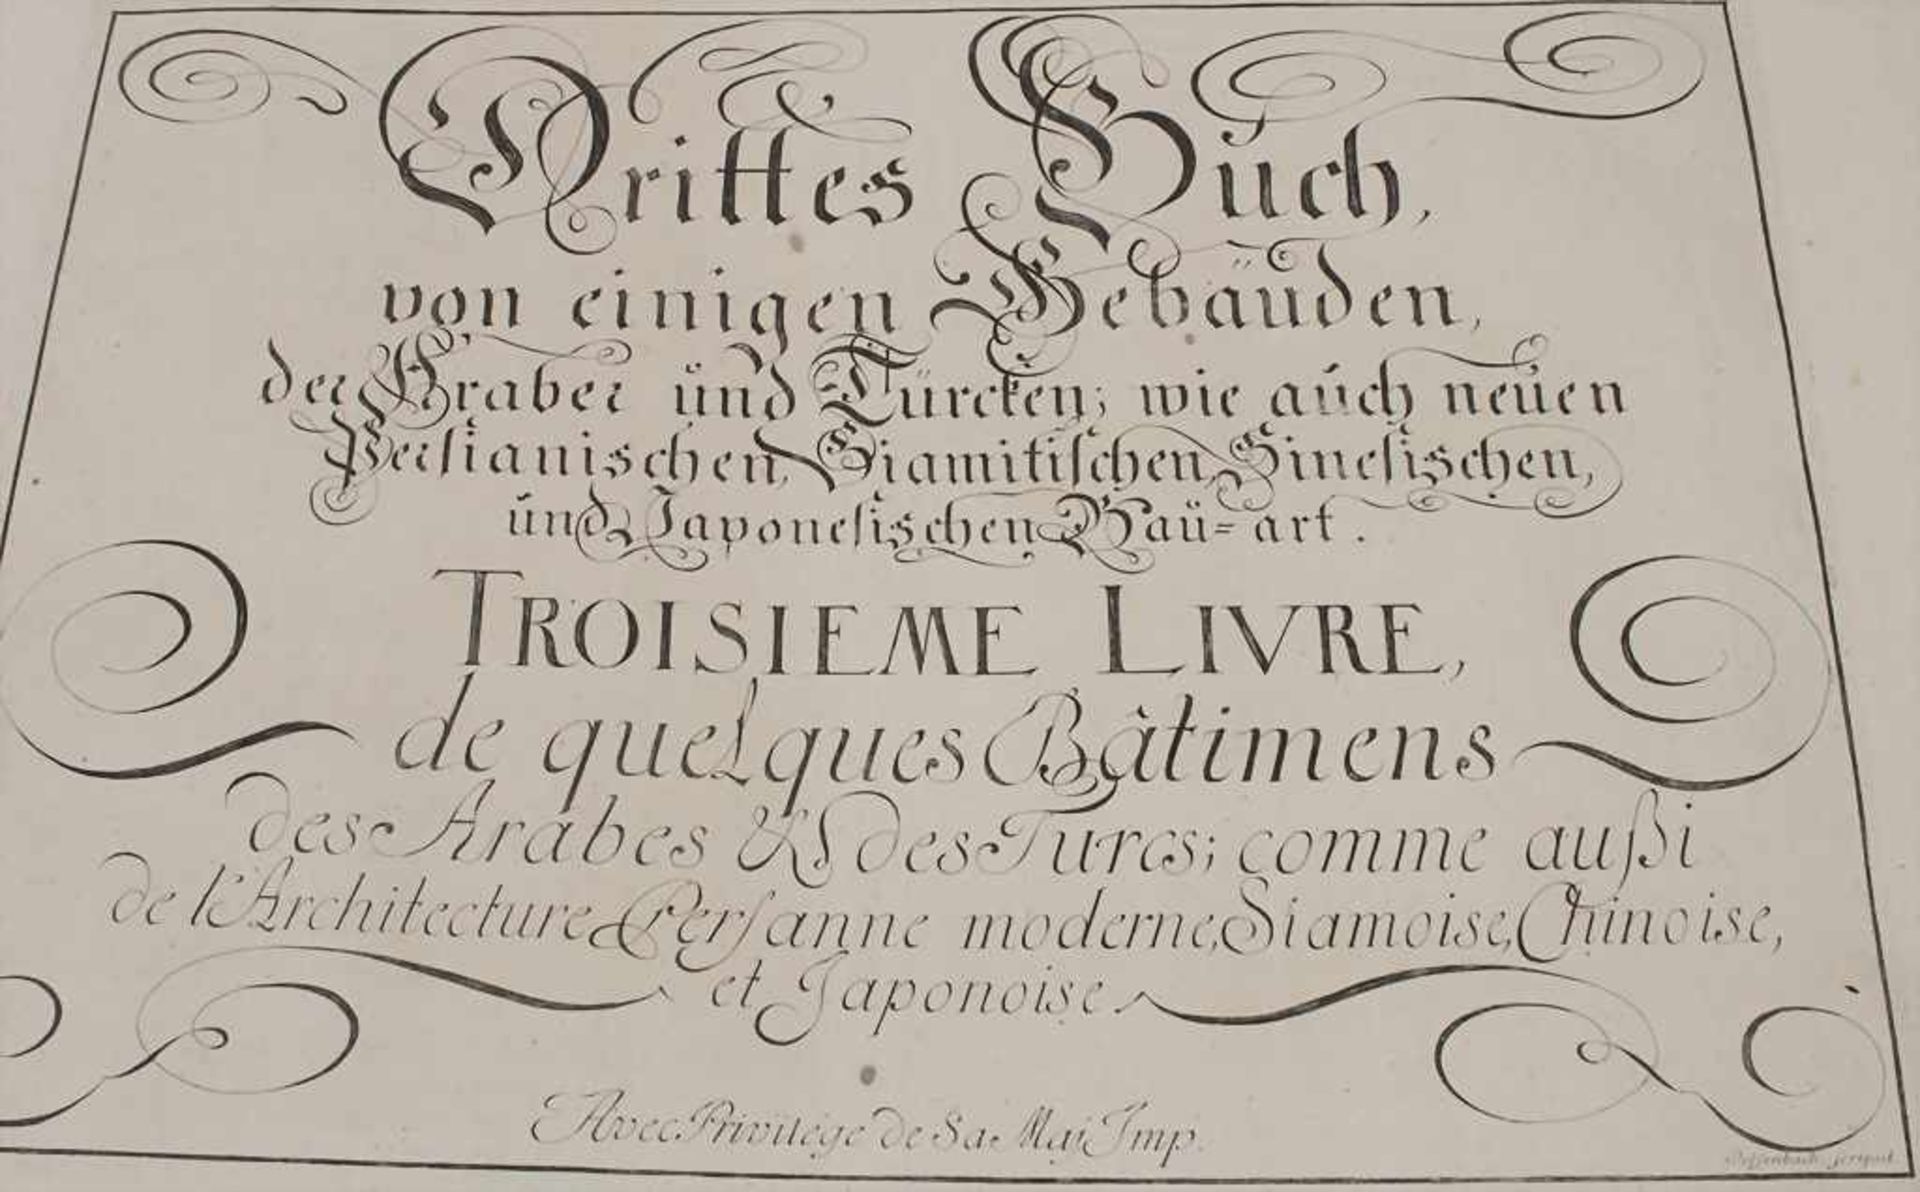 Drittes Buch,
von einigen Gebäuden,
der Araber und Türcken; wie auch neuen
Persianischen, Siamitischen, Sinesischen,
und Japonesischen Bau=art.
TROISIEME LIVRE,
de quelques Bâtimens
des Arabes & des Turcs; comme außi
de l'Architecture Persanne moderne, Siamoise, Chinoise,
et Japonoise.
Avec Privilége de Sa Maj Imp.